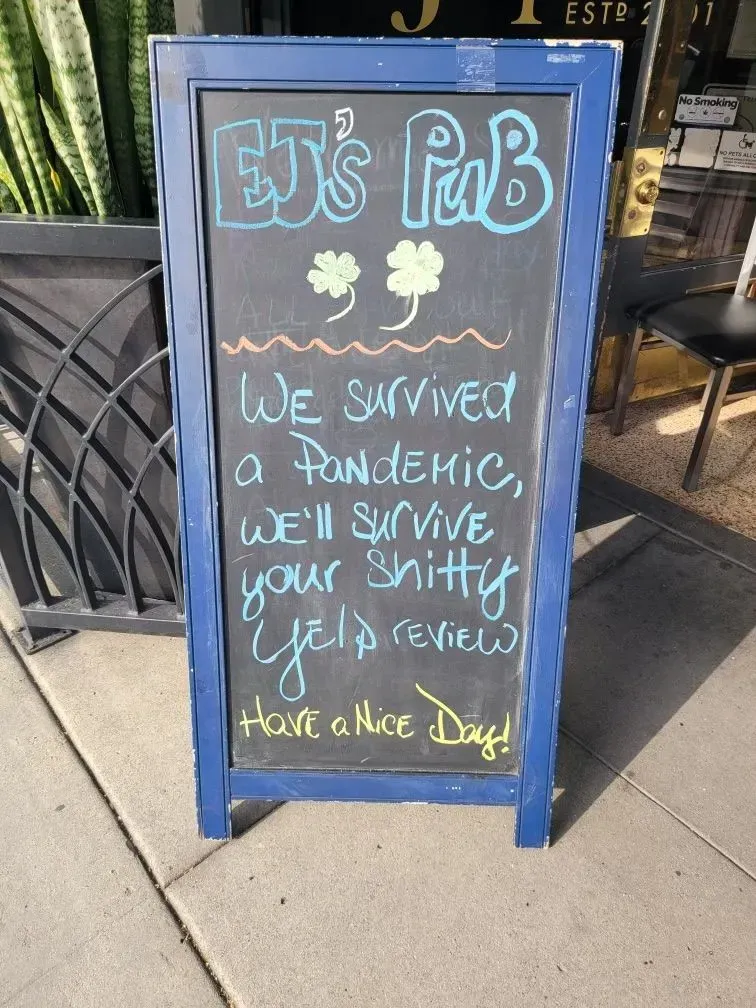 ESTD 2
No Smoking
EJ's PUB
WE SURVIVED
a PANDEMIC,
WE'll SURVIVE
your Shitty
Yelp REVIEW
HAVE a NICE Day!